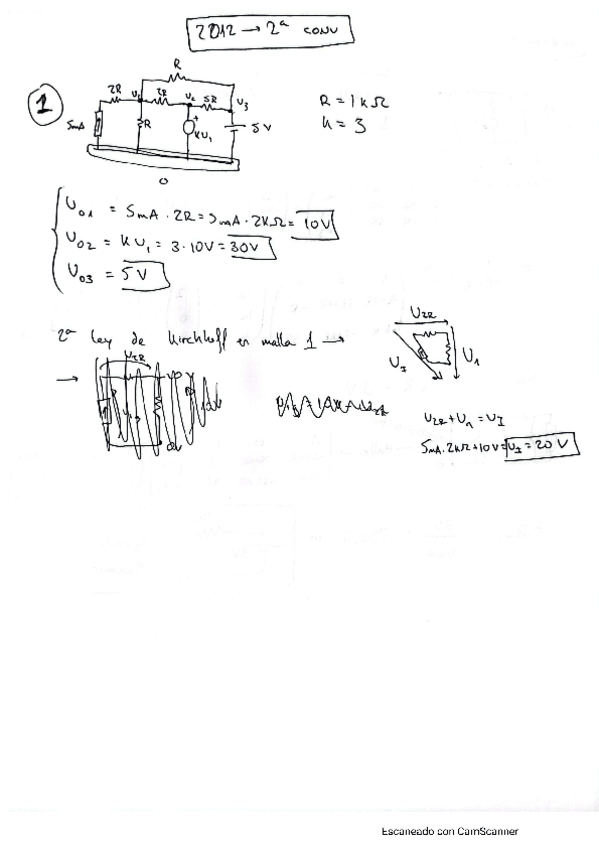 2012 → 2ª CONV
1
R
2R U₁ 2R U₂ 5R U₃
5mA R KU₁ 5V
0
R = 1KΩ
K = 3
U₀₁ = 5mA · 2R = 5mA · 2KΩ = 10V
U₀₂ = KU₁ = 3·10V = 30V
U₀₃ = 5V
2ª ley de Kirchhoff en malla 1 →
U₂R
U_I U₁
→ U₂R
U₂R + U₁ = U_I
5mA·2KΩ + 10V = U_I = 20V
Escaneado con CamScanner